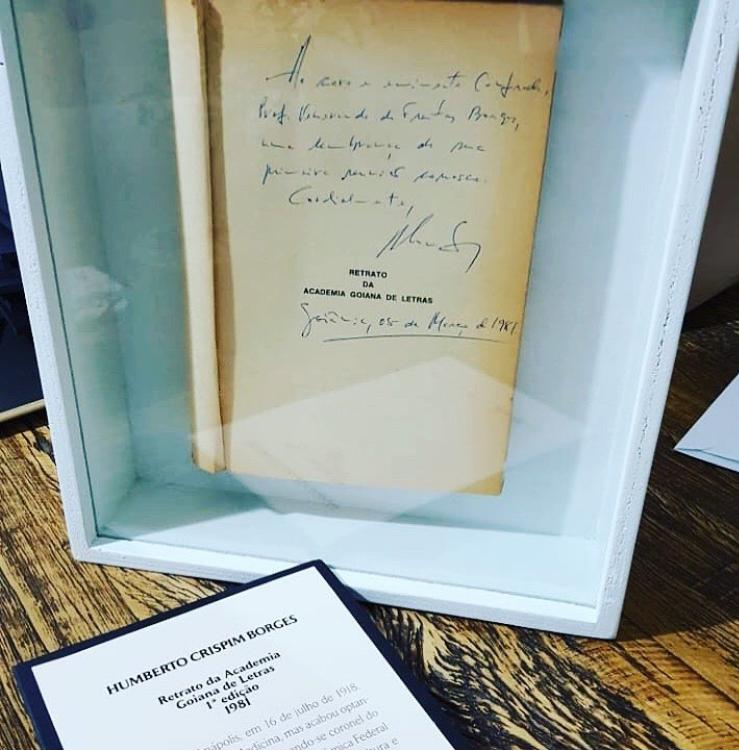 Ao caro e eminente Confrade,
Prof. Venerando de Freitas Borges,
uma lembrança de sua
primeira reunião conosco.
Cordialmente,
RETRATO
DA
ACADEMIA GOIANA DE LETRAS
Goiânia, 05 de Março de 1981
HUMBERTO CRISPIM BORGES
Retrato da Academia
Goiana de Letras
1ª edição
1981
nápolis, em 16 de julho de 1918.
edicina, mas acabou optan-
ndo-se coronel do
mica Federal
tura e